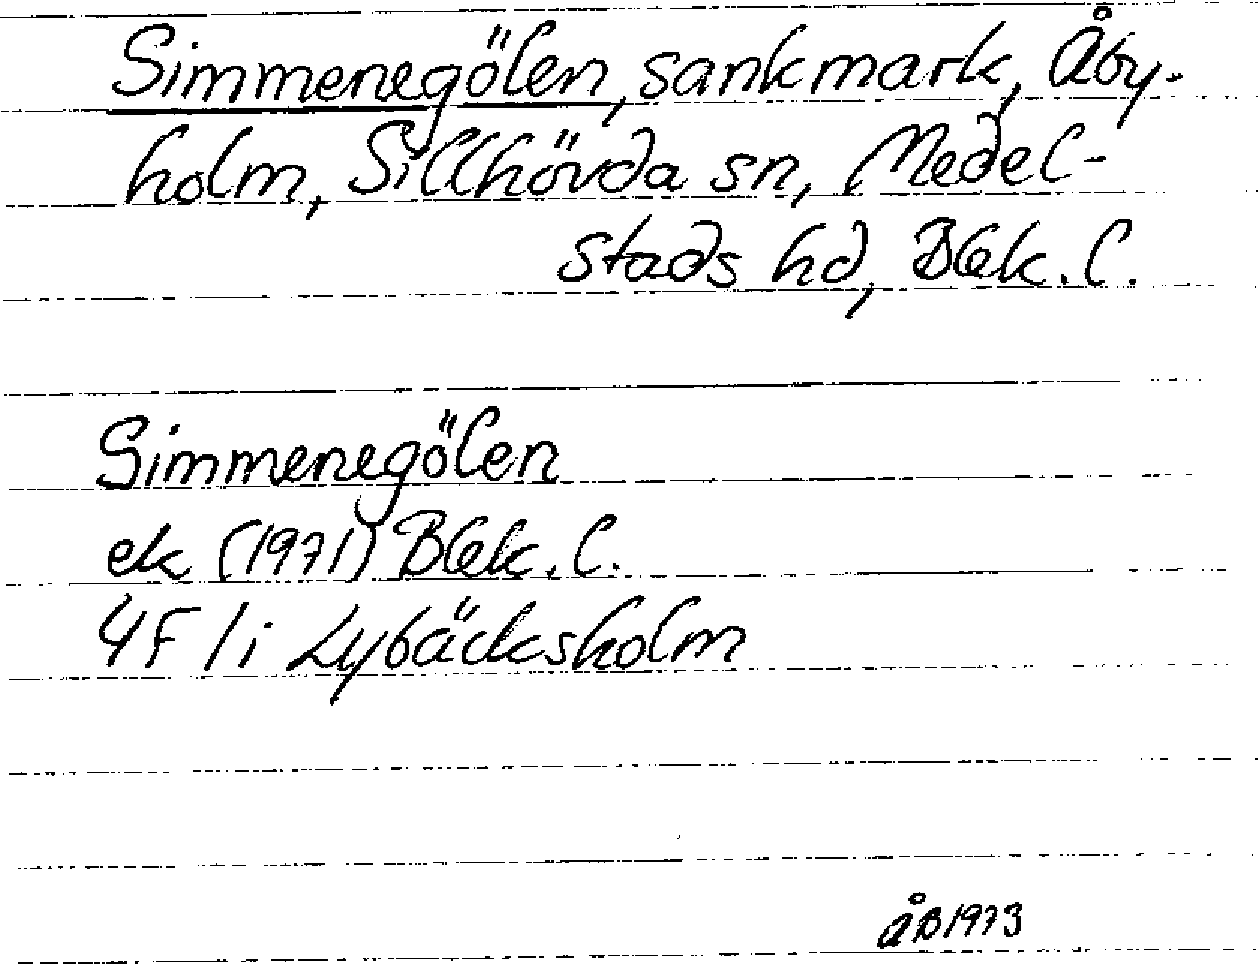 Simmenegölen, sankmark, Åby-
holm, Sillhövda sn, Medel-
stads hd, Blek. l.
Simmenegölen
ek (1971) Blek. l.
4F /i Lybäcksholm
ÅB 1973